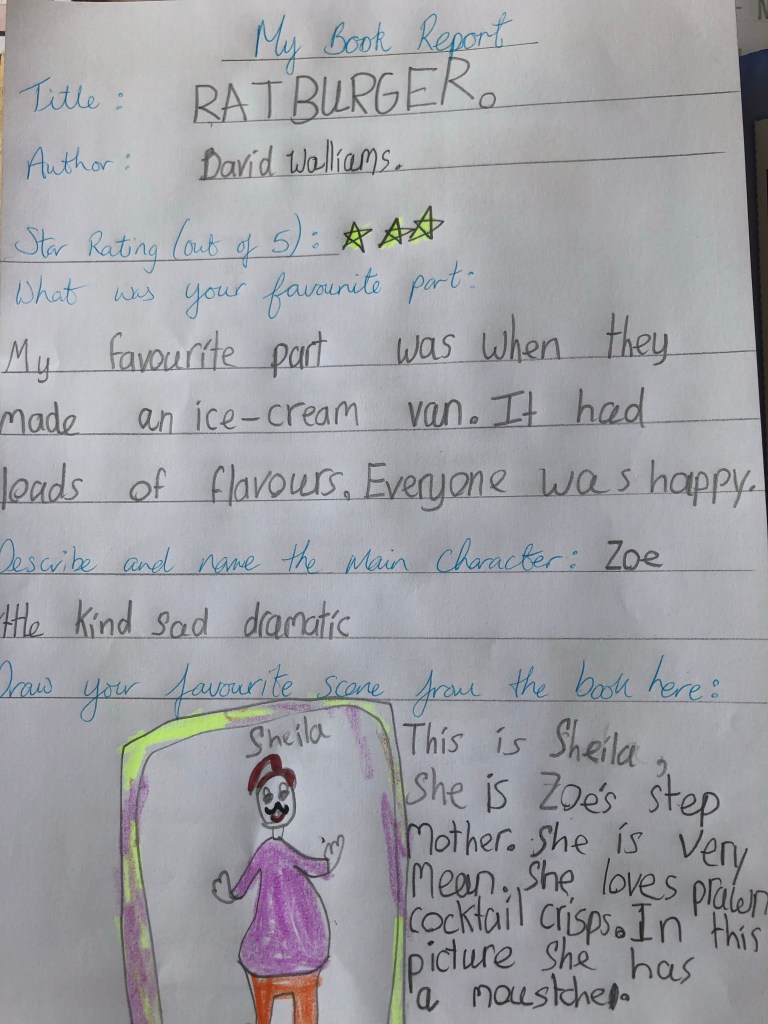 My Book Report
Title : RATBURGER.
Author : David Walliams.
Star Rating (out of 5) :
What was your favourite part :
My favourite part was when they
made an ice-cream van. It had
loads of flavours. Everyone was happy.
Describe and name the main character : Zoe
kind sad dramatic
Draw your favourite scene from the book here :
Sheila
This is Sheila,
She is Zoe's step
Mother. She is very
Mean. She loves prawn
cocktail crisps. In this
picture she has
a moustche.